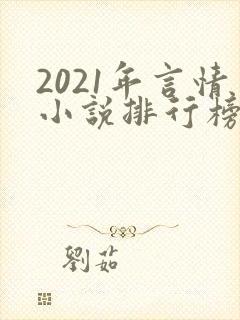 2021年言情
小說排行榜
劉茹